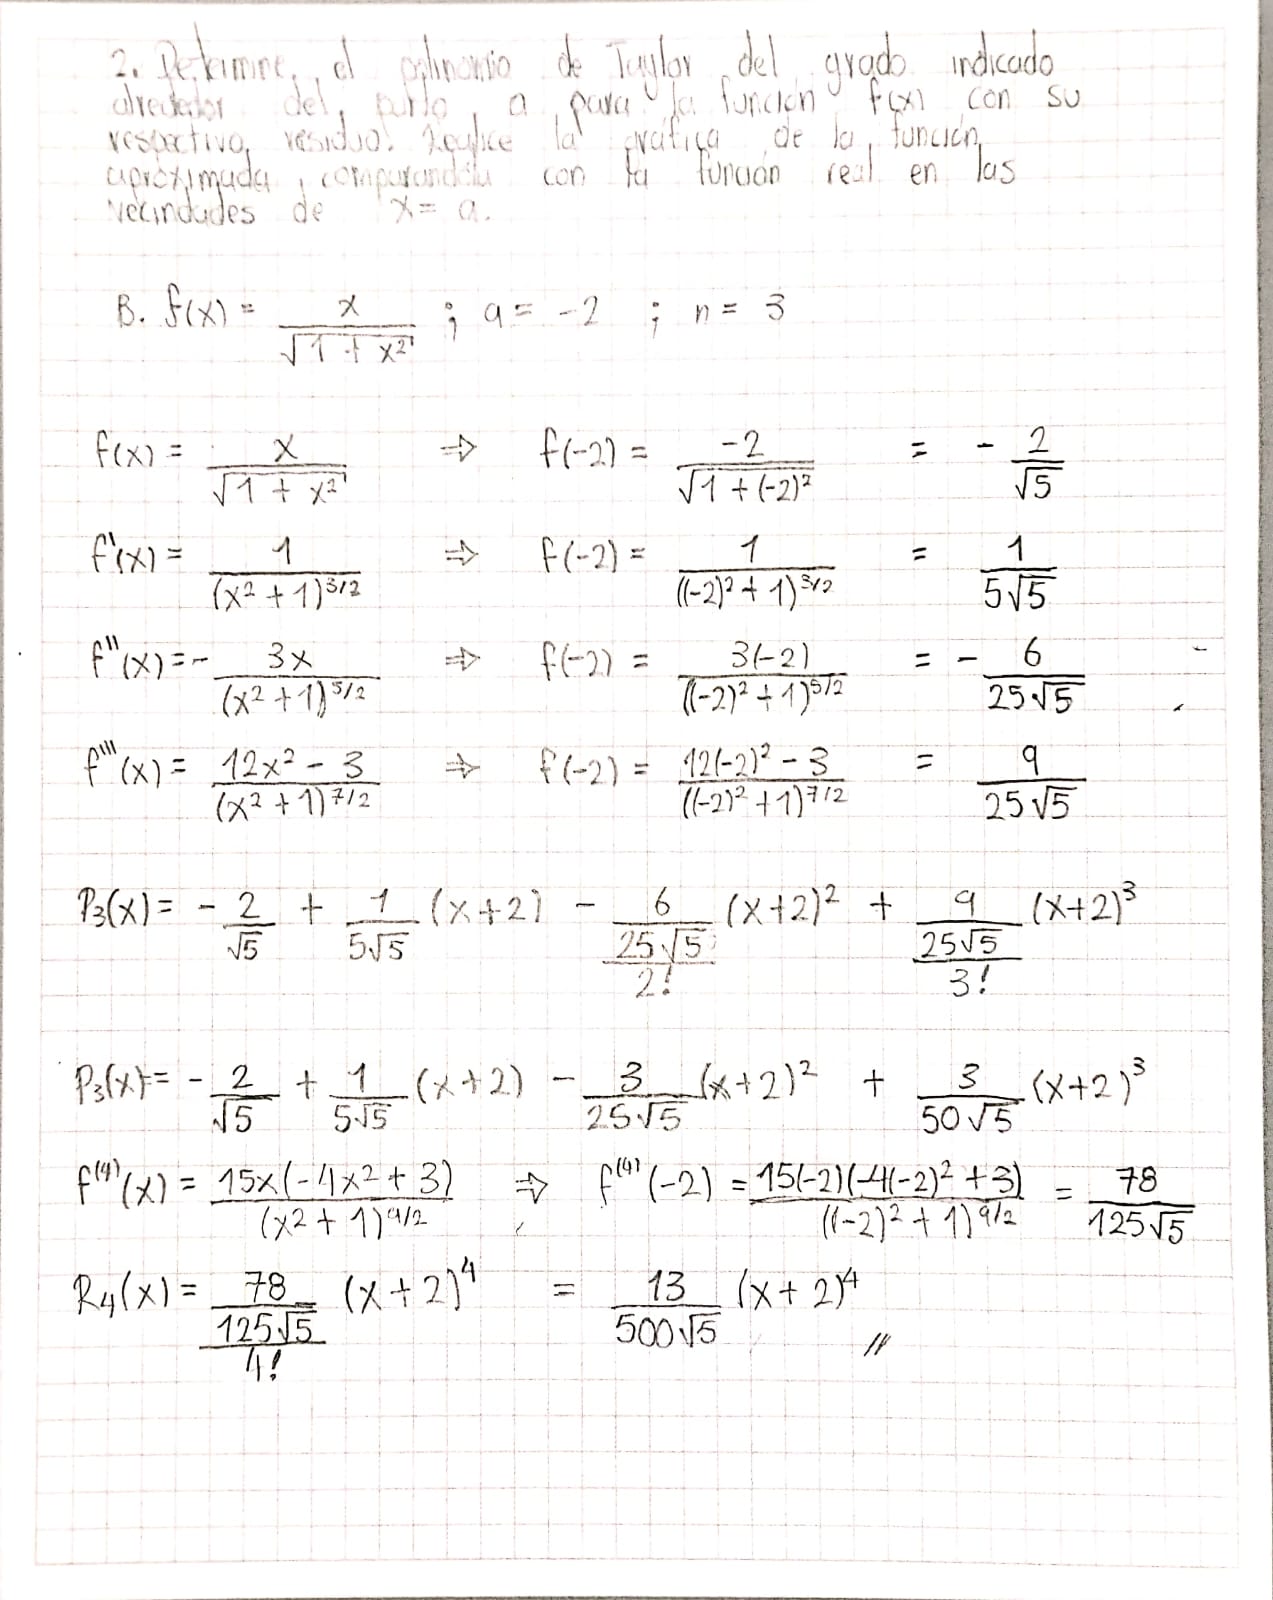 2. Determine, el polinomio de Taylor del grado indicado
alrededor del punto a para la función f(x) con su
respectivo residuo. Realice la gráfica de la función
aproximada, comparandola con la función real en las
vecindades de x = a.
B. f(x) = x / √(1 + x²) ; a = -2 ; n = 3
f(x) = x / √(1 + x²) ⇒ f(-2) = -2 / √(1 + (-2)²) = - 2/√5
f'(x) = 1 / (x² + 1)^3/2 ⇒ f(-2) = 1 / ((-2)² + 1)^3/2 = 1 / 5√5
f''(x) = - 3x / (x² + 1)^5/2 ⇒ f(-2) = 3(-2) / ((-2)² + 1)^5/2 = - 6 / 25√5
f'''(x) = 12x² - 3 / (x² + 1)^7/2 ⇒ f(-2) = 12(-2)² - 3 / ((-2)² + 1)^7/2 = 9 / 25√5
P₃(x) = - 2/√5 + 1/5√5 (x+2) - 6/25√5/2! (x+2)² + 9/25√5/3! (x+2)³
P₃(x) = - 2/√5 + 1/5√5 (x+2) - 3/25√5 (x+2)² + 3/50√5 (x+2)³
f⁽⁴⁾(x) = 15x(-4x² + 3) / (x² + 1)^9/2 ⇒ f⁽⁴⁾(-2) = 15(-2)(-4(-2)² + 3) / ((-2)² + 1)^9/2 = 78 / 125√5
R₄(x) = 78/125√5/4! (x+2)⁴ = 13/500√5 (x+2)⁴ //